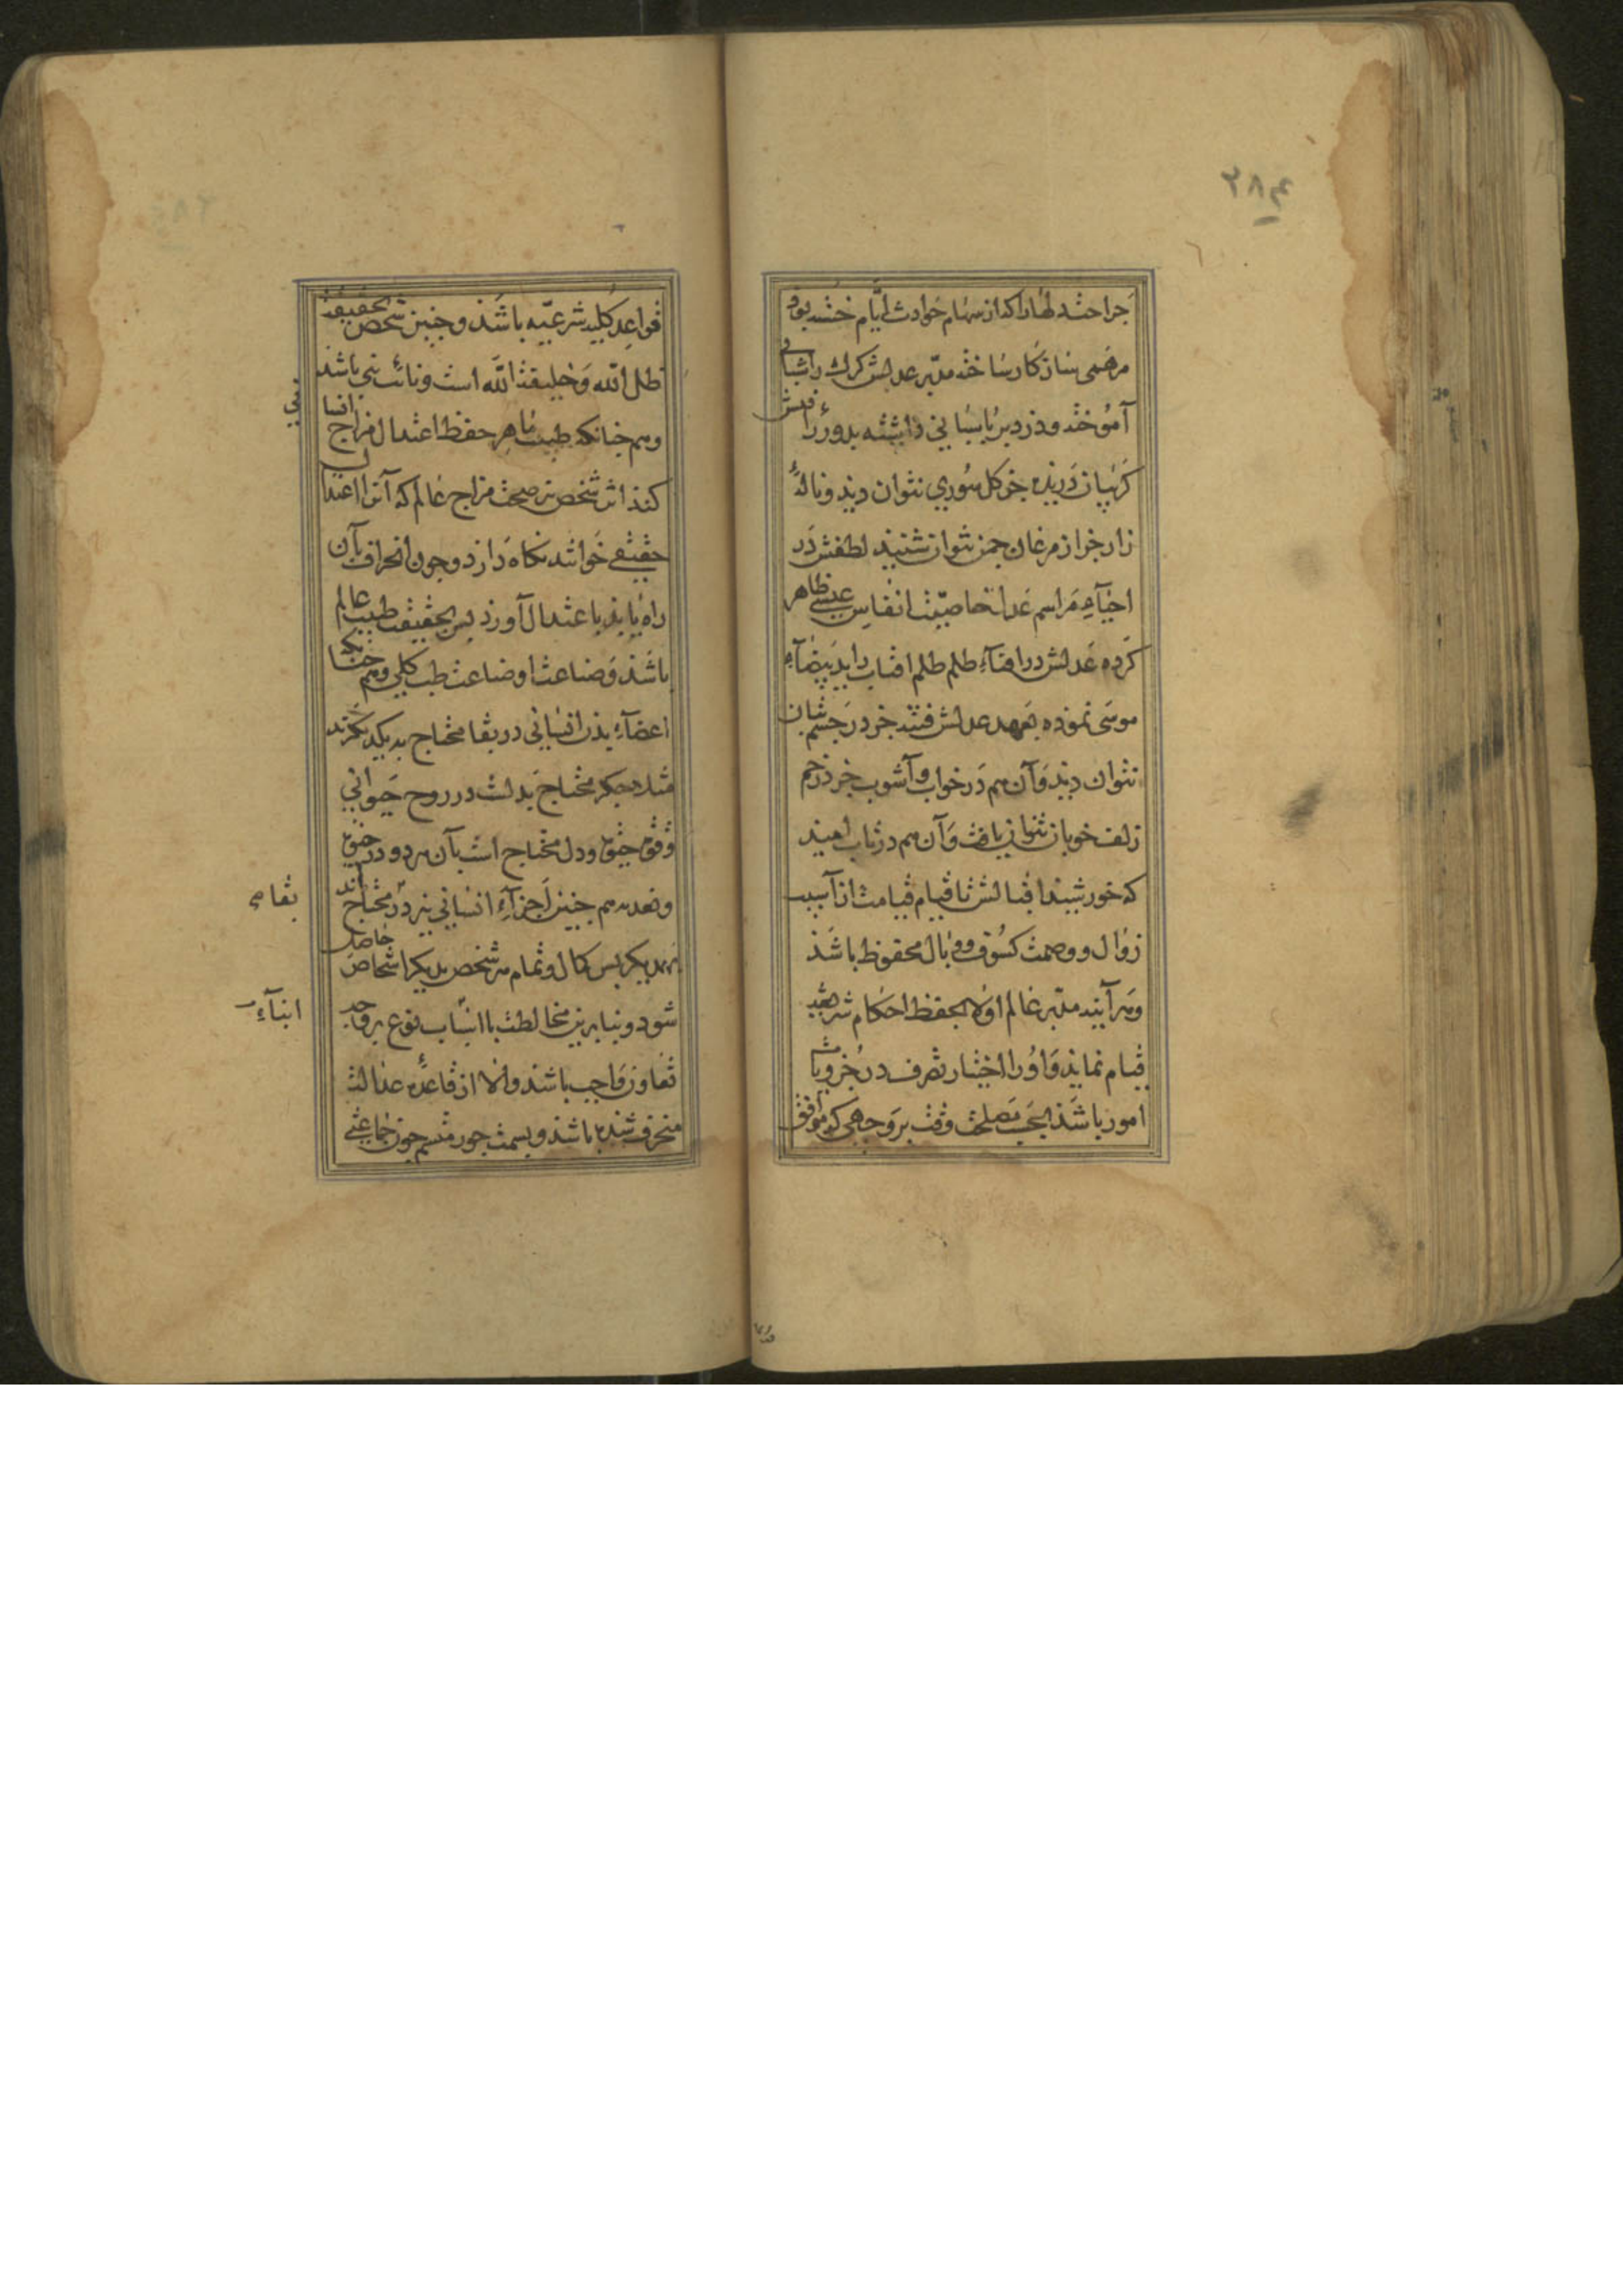 ۲۸۴
جراحت دلها را که از سهام حوادث ایام خسته بود
مرهمی سازکار ساخته مدبر عدلش کرک را شبانی
آموخته و دزد بر پاسبانی داشته بدور رأفتش
کریبان دریده جز کل سوری نتوان دید و نالهٔ
زار جز از مرغان چمن نتوان شنید لطفش در
احیآء مراسم عدالت خاصیت انفاس عیسی ظاهر
کرده عدلش در افنآء ظلم ظلم افتاب را ید بیضآء
موسی نموده بعهد عدلش فتنه جز در چشم بتان
نتوان دید و آن هم در خواب و آشوب جز در خم
زلف خوبان نتوان یافت و آن هم در تاب امید
که خورشید اقبالش تا قیام قیامت از آسیب
زوال و وصمت کسوف و وبال محفوظ باشد
و هرآینه مدبر عالم اولا بحفظ احکام شریعت
قیام نماید و او را اختیار تصرف در جزویات
امور باشد بحسب مصلحت وقت بر وجهی که موافق
قواعد کلیه شرعیه باشد و چنین شخص بحقیقت
ظل الله و خلیفة الله است و نائب نبی باشد
و هم چنانکه طبیب ماهر حفظ اعتدال مزاج انسانی
کند این شخص نیز صحت مزاج عالم که آنرا اعتدال
حقیقی خوانند نکاه دارد و چون انحراف بآن
راه یابد باعتدال آورد پس بحقیقت طبیب عالم
باشد و صناعت او صناعت طب کلی و هم چنانکه
اعضآء بدن انسانی در بقا محتاج بیکدیکرند
مثلا جکر محتاج بدلست در روح حیوانی
و قوت حیوة و دل محتاج است بآن هر دو در
هم چنین اجزآء انسانی نیز در محتاج اند
بقاء
بهمدیکر پس کمال و تمام هر شخص بدیکر اشخاص حاصل
شود و بنابرین مخالطت با انساب نوع بر وجه
ابنآء
تعاون واجب باشد و الا از قاعدهٔ عدالت
منحرف شده باشد و بسمت جور متسم چون جماعتی